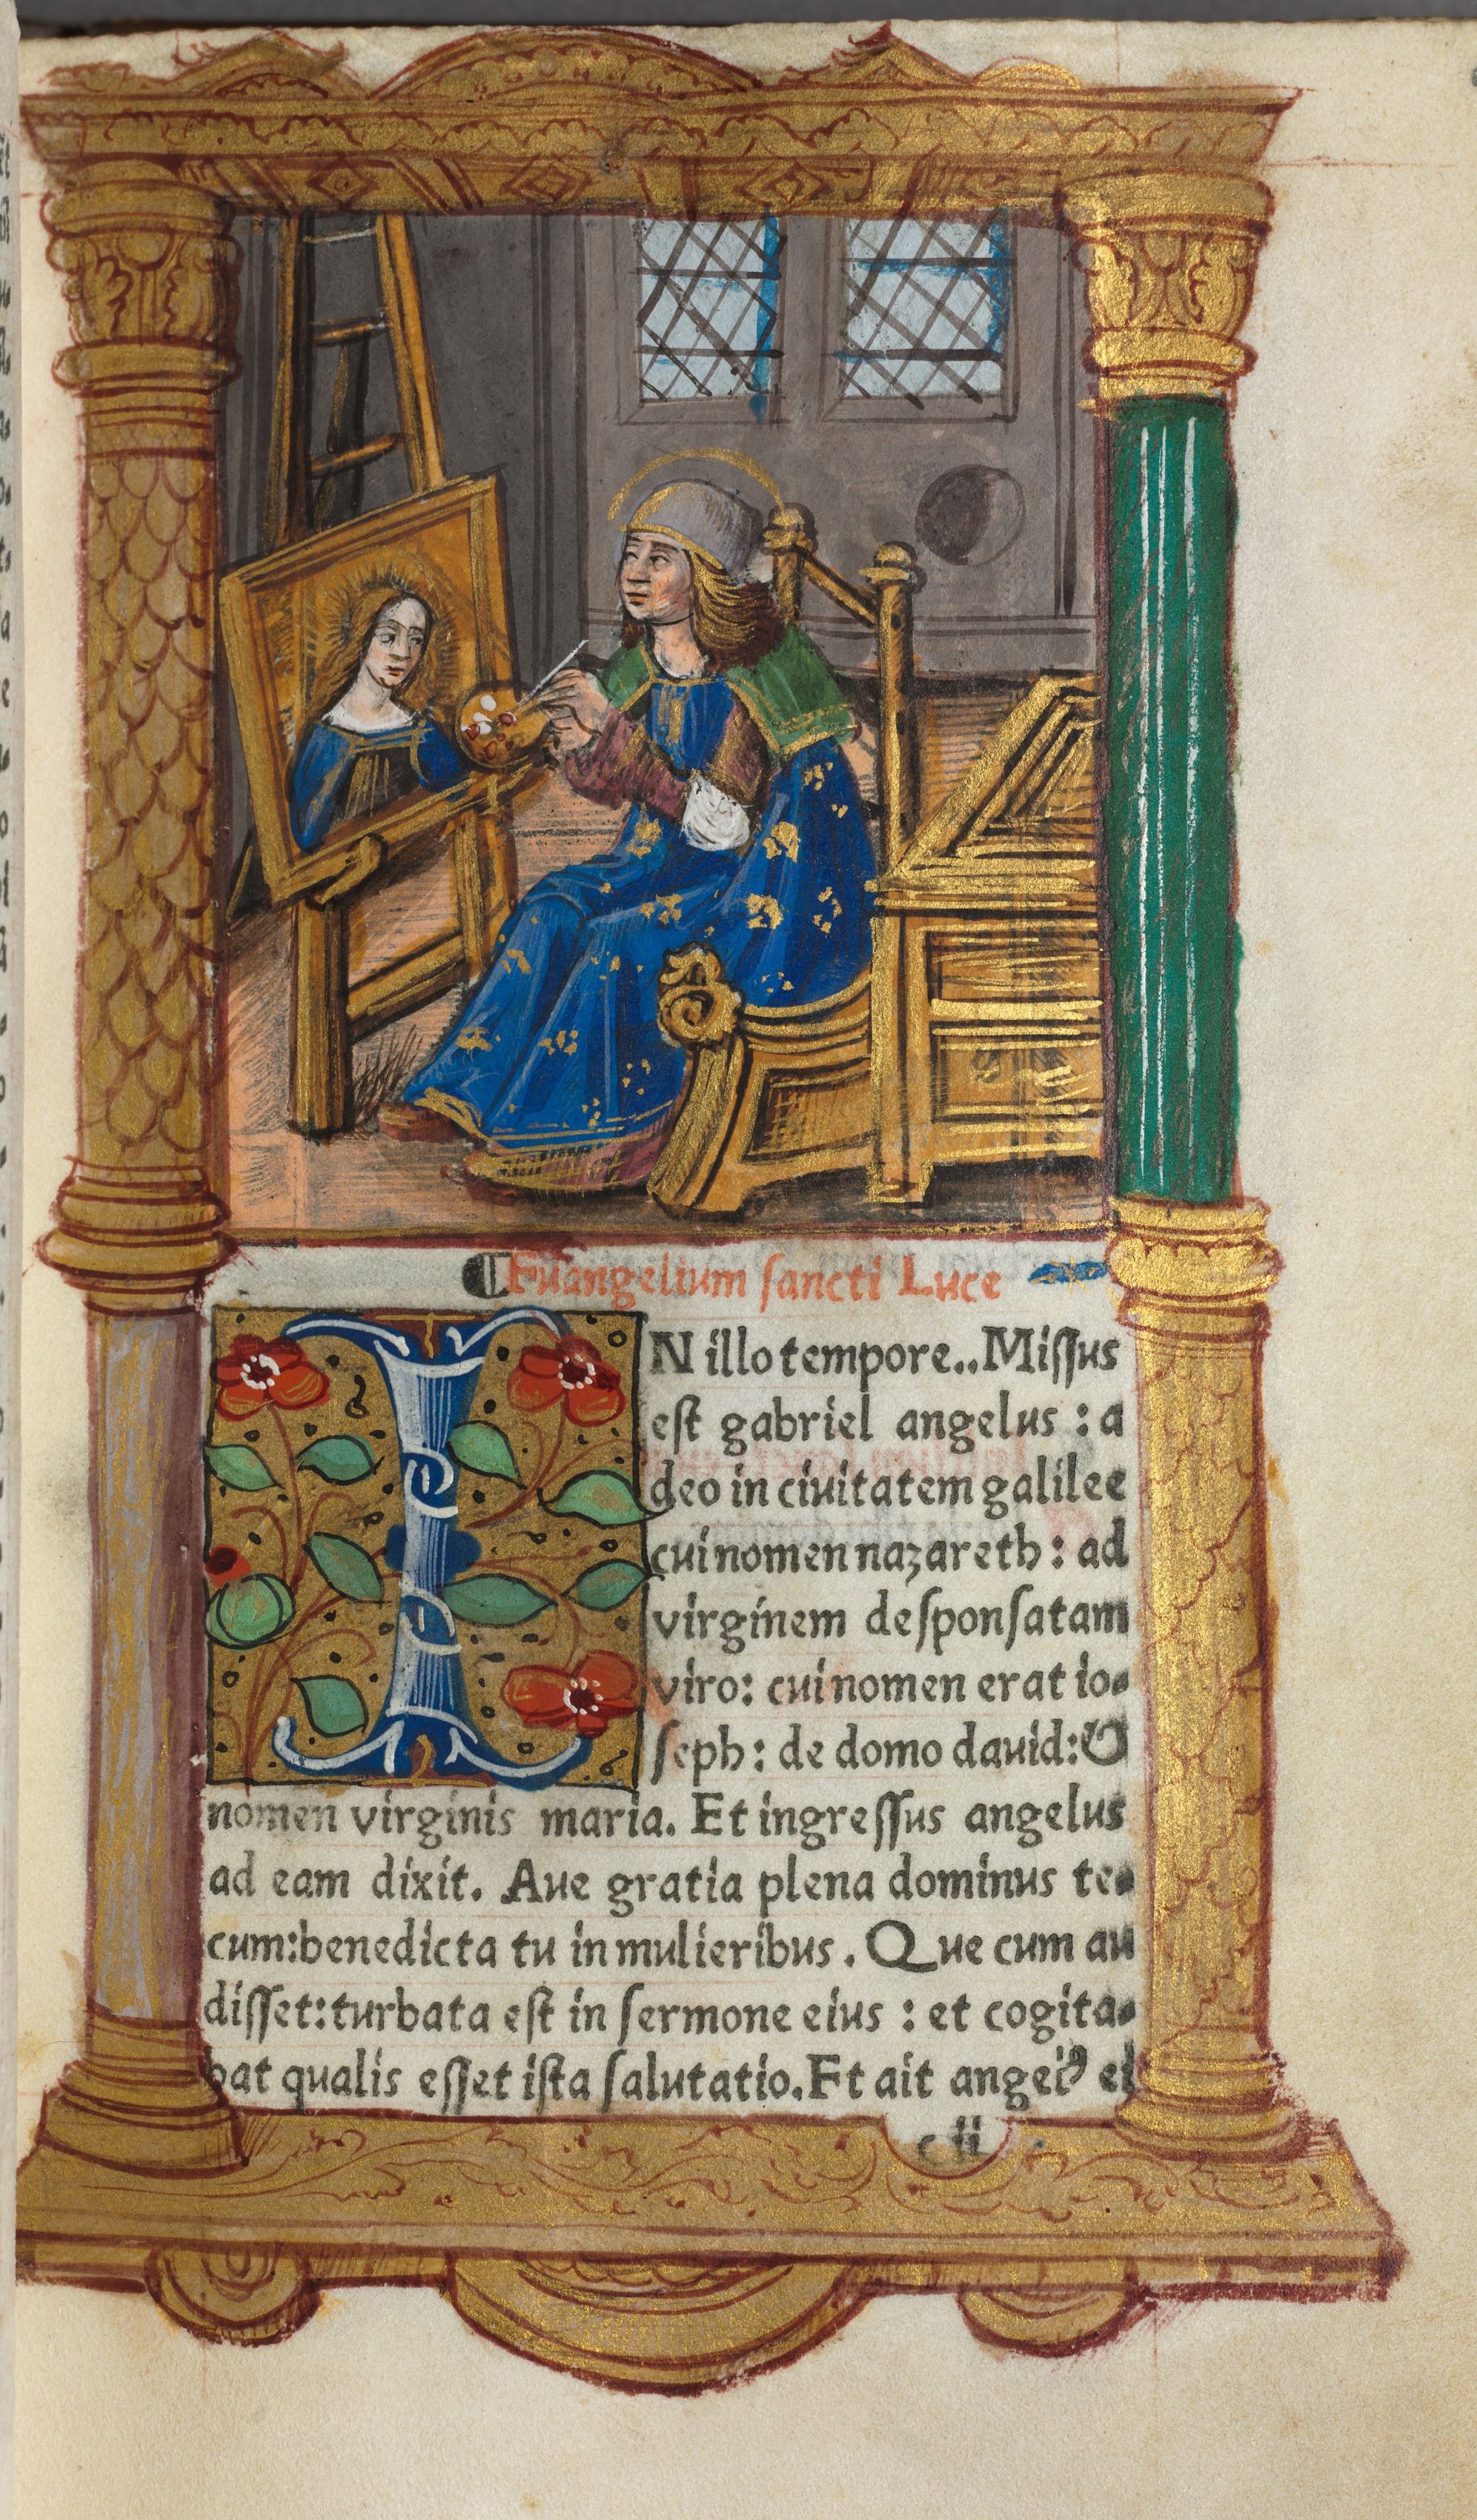 Euangelium ſancti Luce
IN illo tempore.. Miſſus
eſt gabriel angelus : a
deo in ciuitatem galilee
cui nomen nazareth : ad
virginem deſponſatam
viro: cui nomen erat io-
ſeph : de domo dauid: &
nomen virginis maria. Et ingreſſus angelus
ad eam dixit. Aue gratia plena dominus te-
cum:benedicta tu in mulieribus. Que cum au
diſſet:turbata eſt in ſermone eius : et cogita-
bat qualis eſſet iſta ſalutatio. Et ait angelꝰ ei
c ii